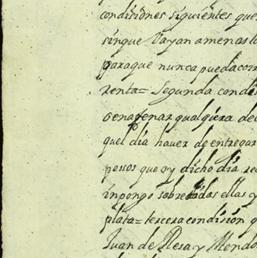 condisiones siguientes que
sinque Vayan amenos
paraque nunca pueda
renta= Segunda condi
enagenar qualquiera de
quel dia haver de entregar
pessos que oy dicho dia re
inpongo sobre ellas y
plata= tersera condision q
Juan de Mesa y Mendo